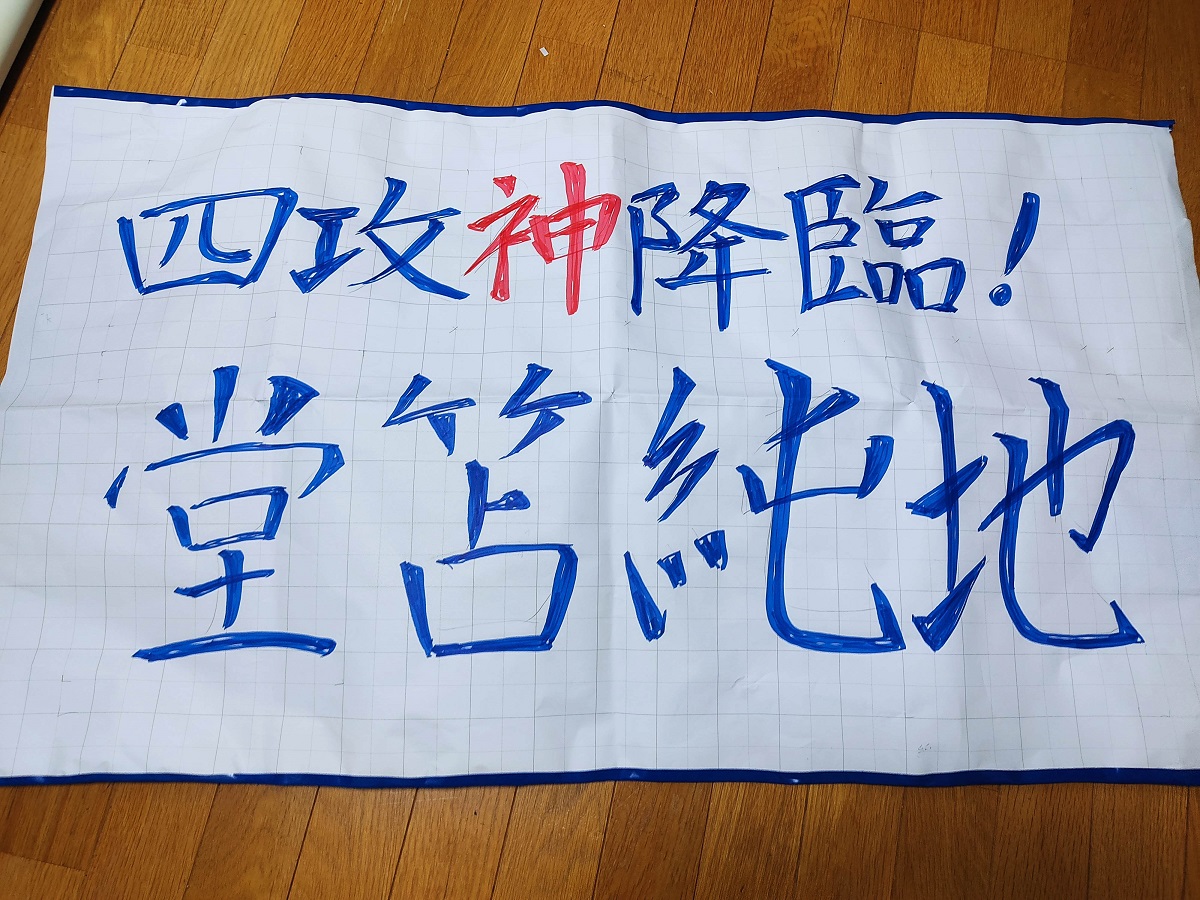 四攻神降臨!
堂笘純地